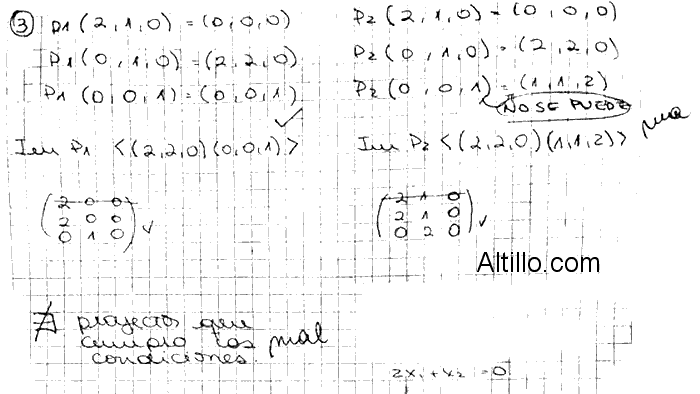 ③ P1 (2,1,0) = (0,0,0)
P1 (0,1,0) = (2,2,0)
P1 (0,0,1) = (0,0,1)
Im P1 <(2,2,0)(0,0,1)>
2 0 0
2 0 0
0 1 0
P2 (2,1,0) = (0,0,0)
P2 (0,1,0) = (2,2,0)
P2 (0,0,1) = (1,1,2)
NO SE PUEDE
Im P2 <(2,2,0)(1,1,2)> mal
2 1 0
2 1 0
0 2 0
Altillo.com
∄ proyector que
cumpla las mal
condiciones.
2x1 + x2 = 0